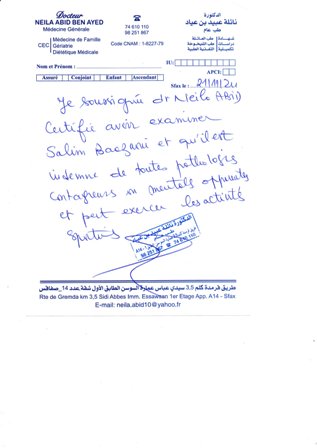 Docteur
NEILA ABID BEN AYED
Médecine Générale
74 610 110
98 251 867
CEC
Médecine de Famille
Gériatrie
Diététique Médicale
Code CNAM : 1-8227-79
الدكتورة
نائلة عبيد بن عياد
طب عام
شهادة
دراسات
تكميلية
طب العائلة
طب الشيخوخة
التغذية الطبية
Nom et Prénom :
IU:
APCI:
Assuré
Conjoint
Enfant
Ascendant
Sfax le :
Je soussignée dr Neila ABID
Certifie avoir examiner
Salim
et qu'il est
indemne de toutes pathologies
contagieuses ou mentales apparentes
et peut exercer les activités
sportives
الدكتورة نائلة عبيد بن عياد
98 251 867
74 610 110
طريق قرمدة كلم 3,5 سيدي عباس عمارة السوسن الطابق الأول شقة عدد 14 ـ صفاقس
Rte de Gremda km 3,5 Sidi Abbes Imm. Essawsan 1er Etage App. A14 - Sfax
E-mail: neila.abid10@yahoo.fr